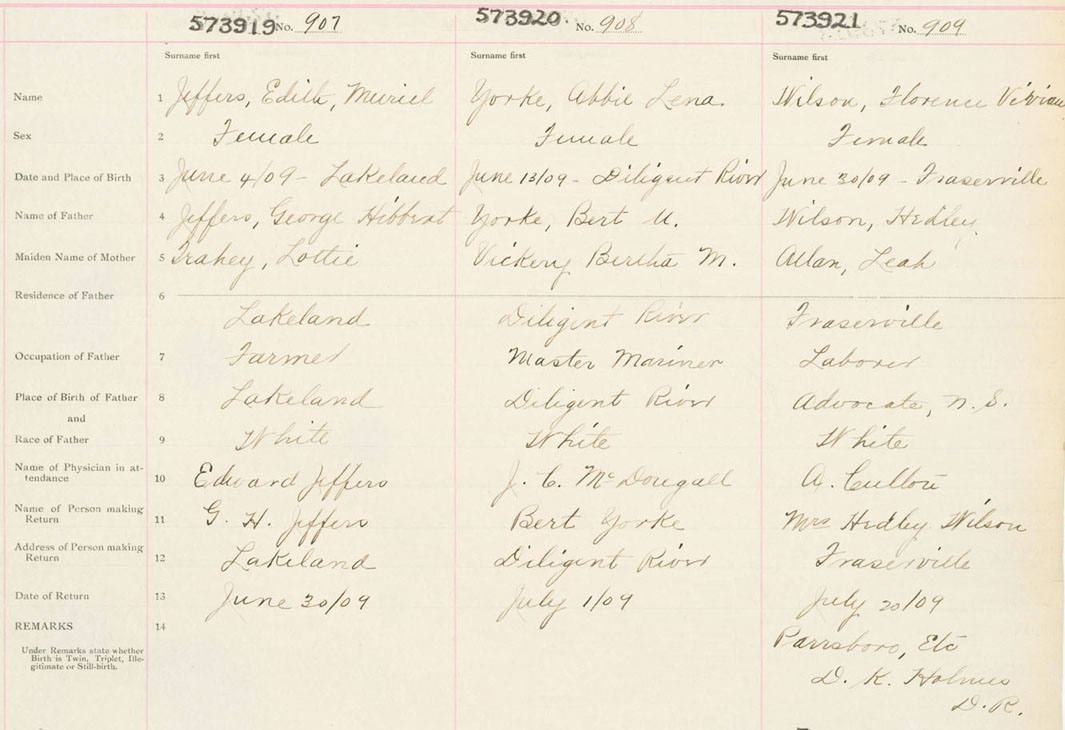 573919 No. 907 573920 No. 908 573921 No. 909
Surname first Surname first Surname first
Name 1 Jeffers, Edith, Muriel Yorke, Abbie Lena. Wilson, Florence Vivian
Sex 2 Female Female Female
Date and Place of Birth 3 June 4/09 - Lakeland June 13/09 - Diligent River June 30/09 - Fraserville
Name of Father 4 Jeffers, George Hibbert Yorke, Bert U. Wilson, Hedley
Maiden Name of Mother 5 Trahey, Lottie Vickery Bertha M. Allan, Leah
Residence of Father 6
Lakeland Diligent River Fraserville
Occupation of Father 7 Farmer Master Mariner Laborer
Place of Birth of Father 8 Lakeland Diligent River Advocate, N.S.
and
Race of Father 9 White White White
Name of Physician in at-
tendance 10 Edward Jeffers J. C. McDougall A.
Name of Person making
Return 11 G. H. Jeffers Bert Yorke Mrs Hedley Wilson
Address of Person making
Return 12 Lakeland Diligent River Fraserville
Date of Return 13 June 30/09 July 1/09 July 20/09
REMARKS 14
Parrsboro, Etc
Under Remarks state whether
Birth is Twin, Triplet, Ille-
gitimate or Still-birth.
D. K. Holmes
D.R.